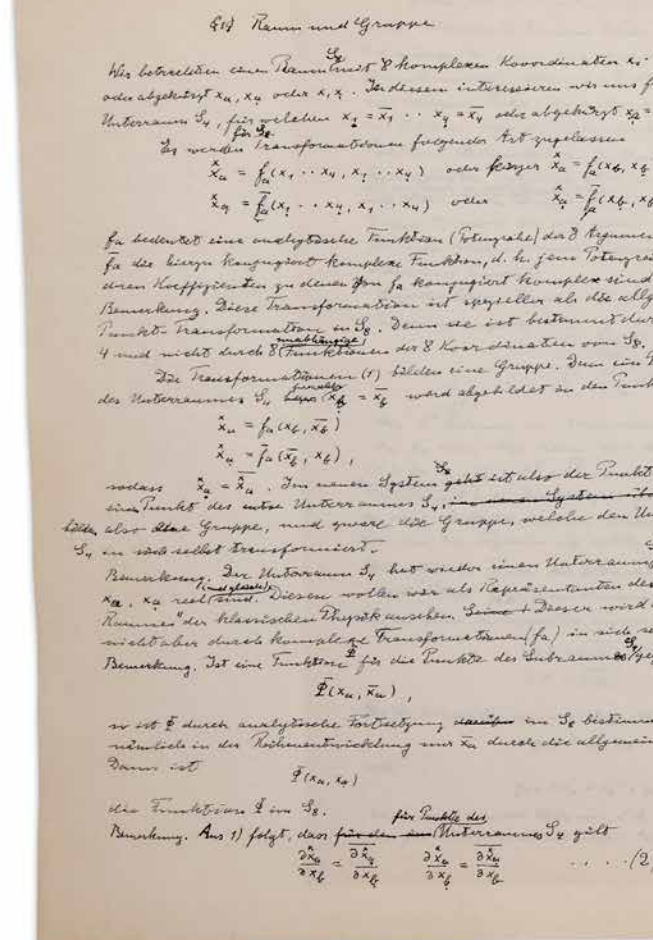 §1) Raum und Gruppe
S₈
Wir betrachten einen Raum mit 8 komplexen Koordinaten x₁
oder abgekürzt xₐ, xₐ̣ oder x, x̣. In diesem interessieren wir uns f
Unterraum S₄, für welchen x₁̣ = x̄₁ · · x₄̣ = x̄₄ oder abgekürzt xₐ̣ =
für S₈
Es werden Transformationen folgender Art zugelassen
x̽ₐ = fₐ(x₁ · · x₄, x₁̣ · · x₄̣) oder kürzer x̽ₐ = fₐ(x_b, x_ḅ
x̽ₐ̣ = f̄ₐ(x₁̣ · · x₄̣, x₁ · · x₄) oder x̽ₐ̣ = f̄ₐ(x_ḅ, x_b
fₐ bedeutet eine analytische Funktion (Potenzreihe) der 8 Argumen
f̄ₐ die hierzu konjugiert komplexe Funktion, d. h. jene Potenzrei
deren Koeffizienten zu denen von fₐ konjugiert komplex sind
Bemerkung. Diese Transformation ist spezieller als die allg
Punkt-Transformation in S₈. Denn sie ist bestimmt dur
unabhängige
4 und nicht durch 8 Funktionen der 8 Koordinaten von S₈.
Die Transformationen (1) bilden eine Gruppe. Denn ein P
des Unterraumes S₄ (x_ḅ = x̄_b) wird abgebildet in den Punkt
x̽ₐ = fₐ(x_b, x̄_b)
x̽ₐ̣ = f̄ₐ(x̄_b, x_b),
sodass x̽ₐ̣ = x̽̄ₐ. Im neuen System ist also der Punkt
ein Punkt des Unterraumes S₄,
bilden also eine Gruppe, und zwar die Gruppe, welche den Un
S₄ in sich selbst transformiert.
Bemerkung. Der Unterraum S₄ hat wieder einen Unterraum
und gleich
xₐ, xₐ̣ reell sind. Diesen wollen wir als Repräsentanten des
Raumes" der klassischen Physik ansehen. Dieser wird
nicht aber durch komplexe Transformationen (fₐ) in sich se
Bemerkung. Ist eine Funktion Φ für die Punkte des Subraumes S₄ ge
Φ(xₐ, x̄ₐ),
so ist Φ durch analytische Fortsetzung im S₈ bestimm
nämlich in der Reihenentwicklung nur x̄ₐ durch die allgemein
Dann ist
Φ(xₐ, xₐ̣)
die Funktion Φ im S₈.
für Punkte des
Bemerkung. Aus 1) folgt, dass Unterraumes S₄ gilt
∂x̽ₐ/∂x_b = ∂x̽ₐ̣/∂x_ḅ ∂x̽ₐ/∂x_ḅ = ∂x̽ₐ̣/∂x_b · · · · (2